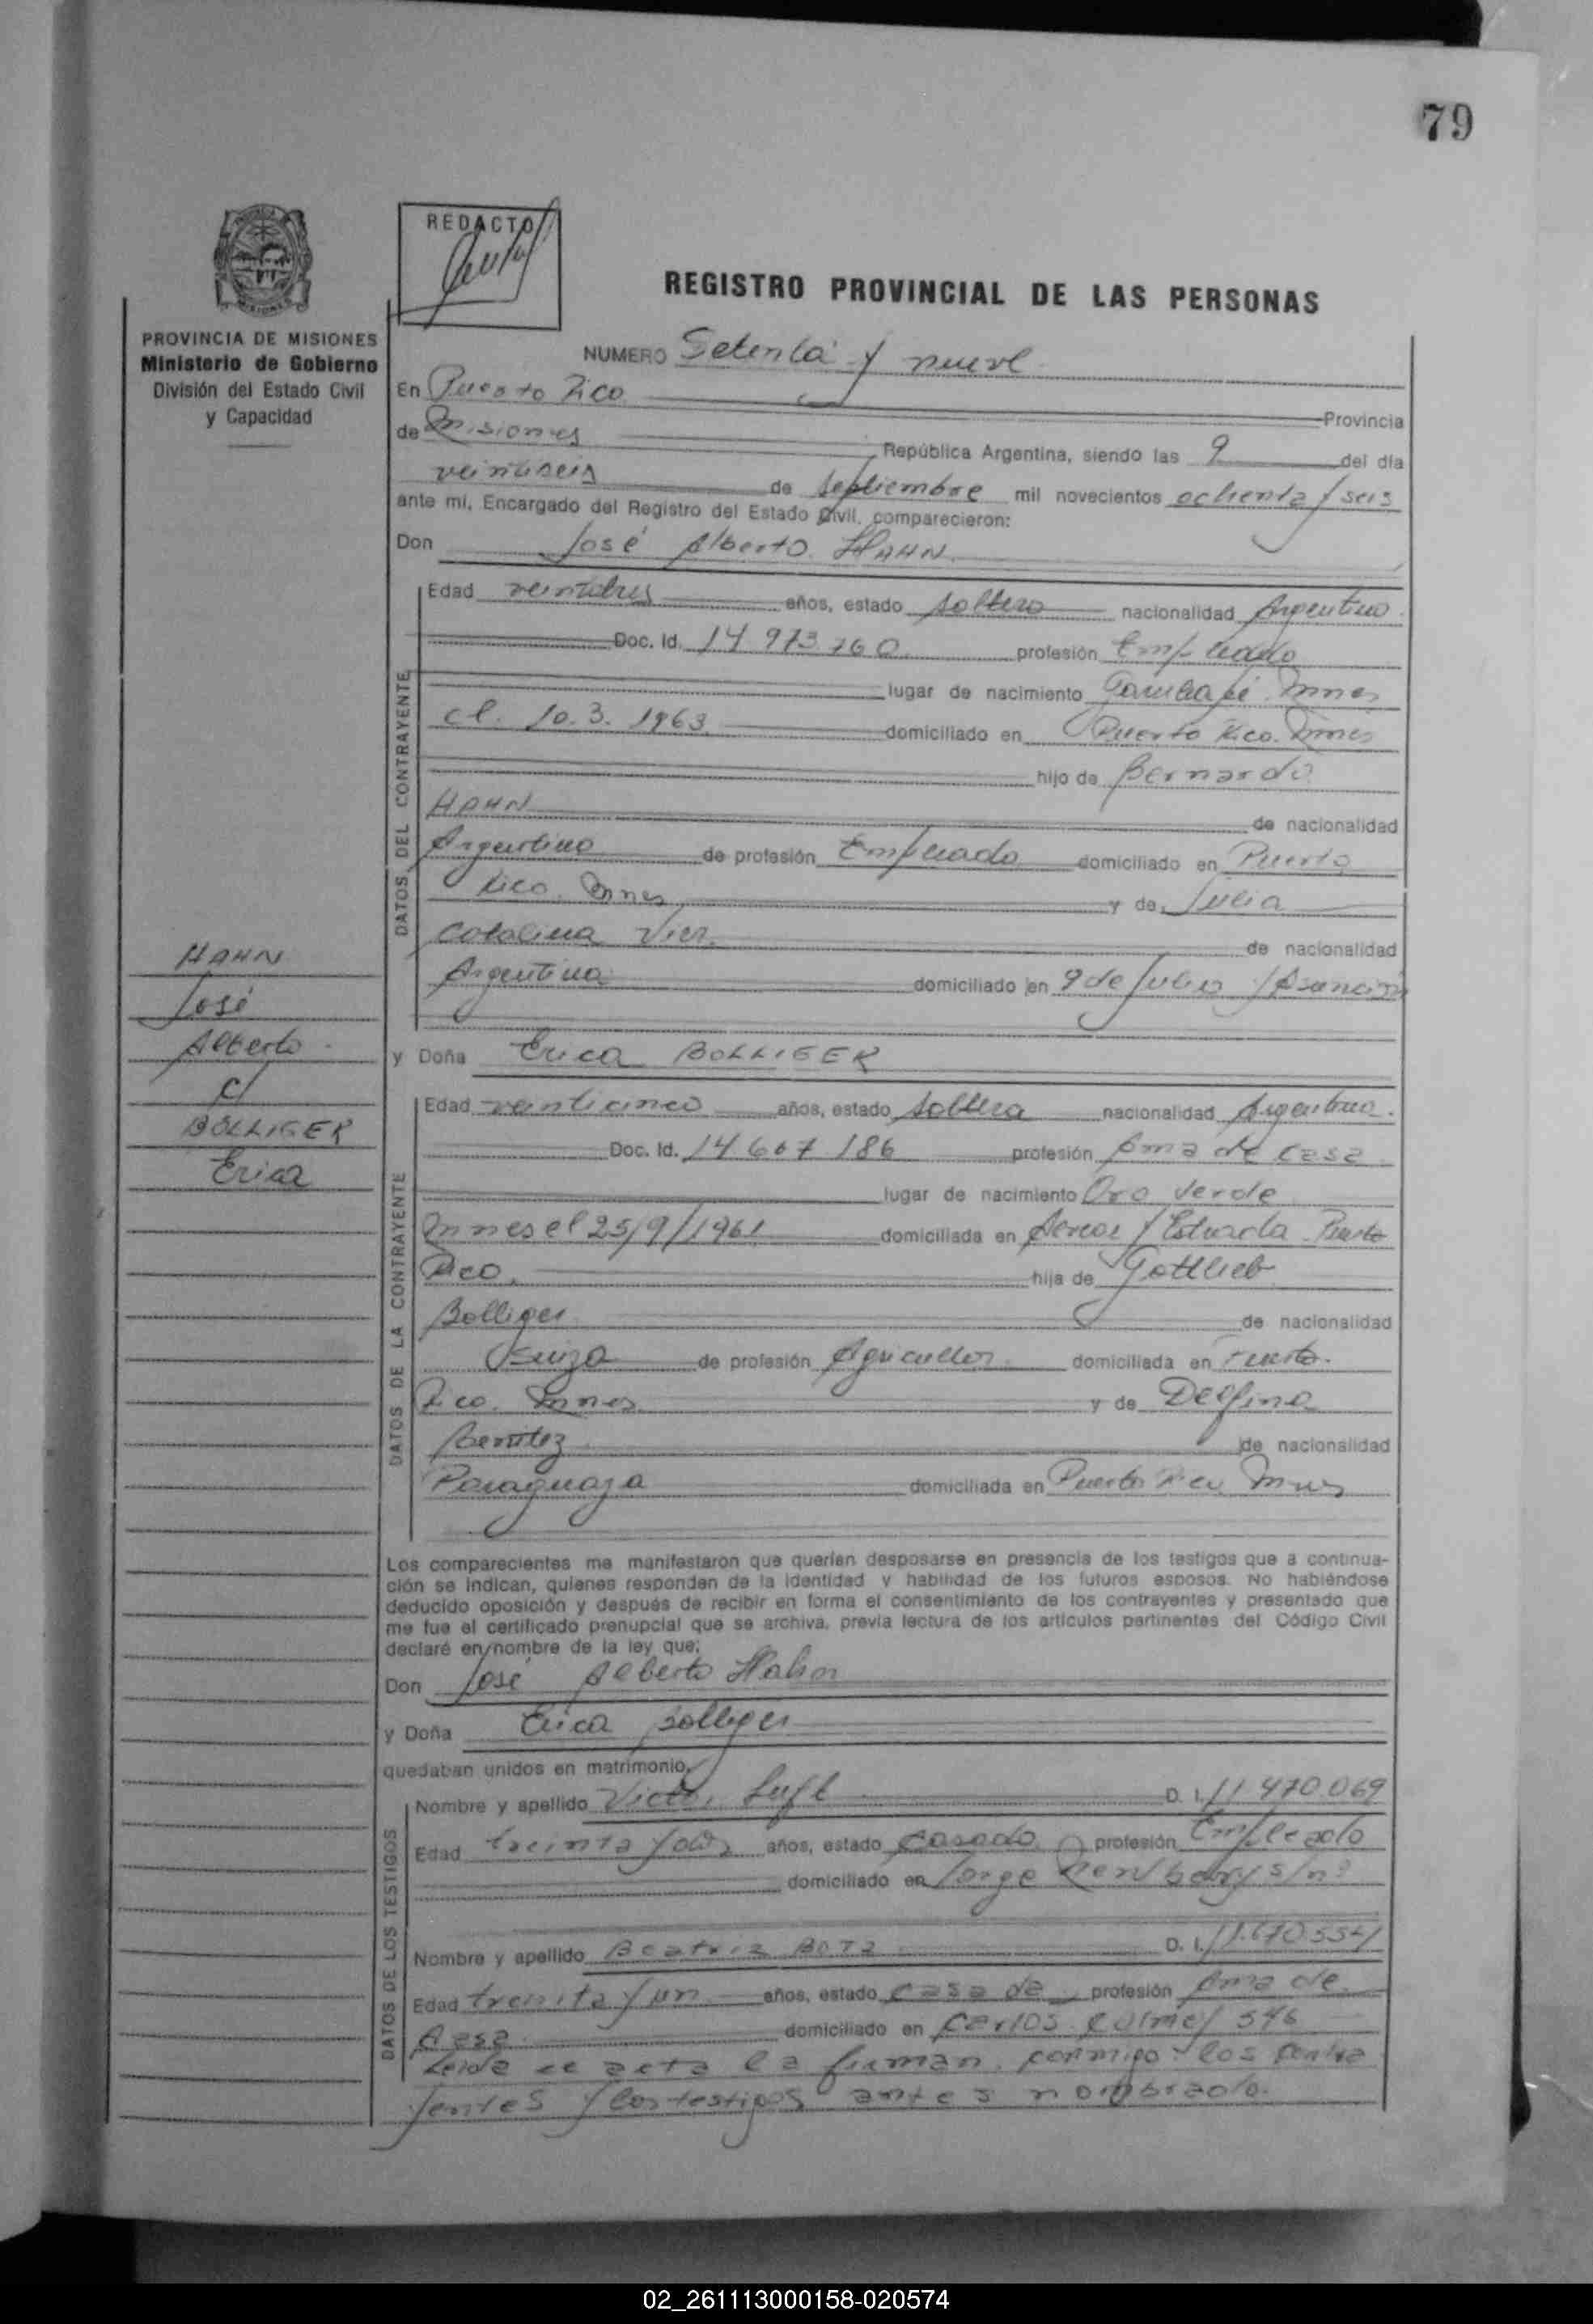 79
REDACTO
REGISTRO PROVINCIAL DE LAS PERSONAS
PROVINCIA DE MISIONES
Ministerio de Gobierno
División del Estado Civil
y Capacidad
NUMERO Setenta y nueve
En Puerto Rico Provincia
de Misiones República Argentina, siendo las 9 del día
veintiseis de septiembre mil novecientos ochenta y seis
ante mi, Encargado del Registro del Estado Civil, comparecieron:
Don José Alberto HAHN
DATOS DEL CONTRAYENTE
Edad veintitres años, estado soltero nacionalidad Argentino
Doc. Id. 14 973 760 profesión Empleado
lugar de nacimiento Garuhapé Mnes
el. 10.3.1963 domiciliado en Puerto Rico. Mnes
hijo de Bernardo
HAHN de nacionalidad
Argentino de profesión Empleado domiciliado en Puerto
Rico. Mnes y de Julia
Catalina Vier de nacionalidad
Argentina domiciliado en 9 de Julio y Asunción
HAHN
José
Alberto
c/
BOLLIGER
Erica
y Doña Erica BOLLIGER
DATOS DE LA CONTRAYENTE
Edad veinticinco años, estado soltera nacionalidad Argentina.
Doc. Id. 14 607 186 profesión Ama de casa
lugar de nacimiento Oro Verde
Mnes el 25/9/1961 domiciliada en y Estrada Puerto
Rico. hija de Gottlieb
Bolliger de nacionalidad
Suiza de profesión Agricultor domiciliada en Puerto
Rico. Mnes y de Delfina
Benitez de nacionalidad
Paraguaya domiciliada en Puerto Rico Mnes
Los comparecientes me manifestaron que querían desposarse en presencia de los testigos que a continua-
ción se indican, quienes responden de la identidad y habilidad de los futuros esposos. No habiéndose
deducido oposición y después de recibir en forma el consentimiento de los contrayentes y presentado que
me fue el certificado prenupcial que se archiva, previa lectura de los artículos pertinentes del Código Civil
declaré en nombre de la ley que:
Don José Alberto Hahn
y Doña Erica Bolliger
quedaban unidos en matrimonio.
DATOS DE LOS TESTIGOS
Nombre y apellido Victor Luft D. I. 11 470.069
Edad treinta y dos años, estado casado profesión Empleado
domiciliado en Jorge s/nº
Nombre y apellido Beatriz D. I.
Edad treinta y un años, estado casa de profesión Ama de
casa domiciliado en Carlos Culmey 546
Leida el acta la firman conmigo los contra
yentes y los testigos antes nombrado.
02_261113000158-020574